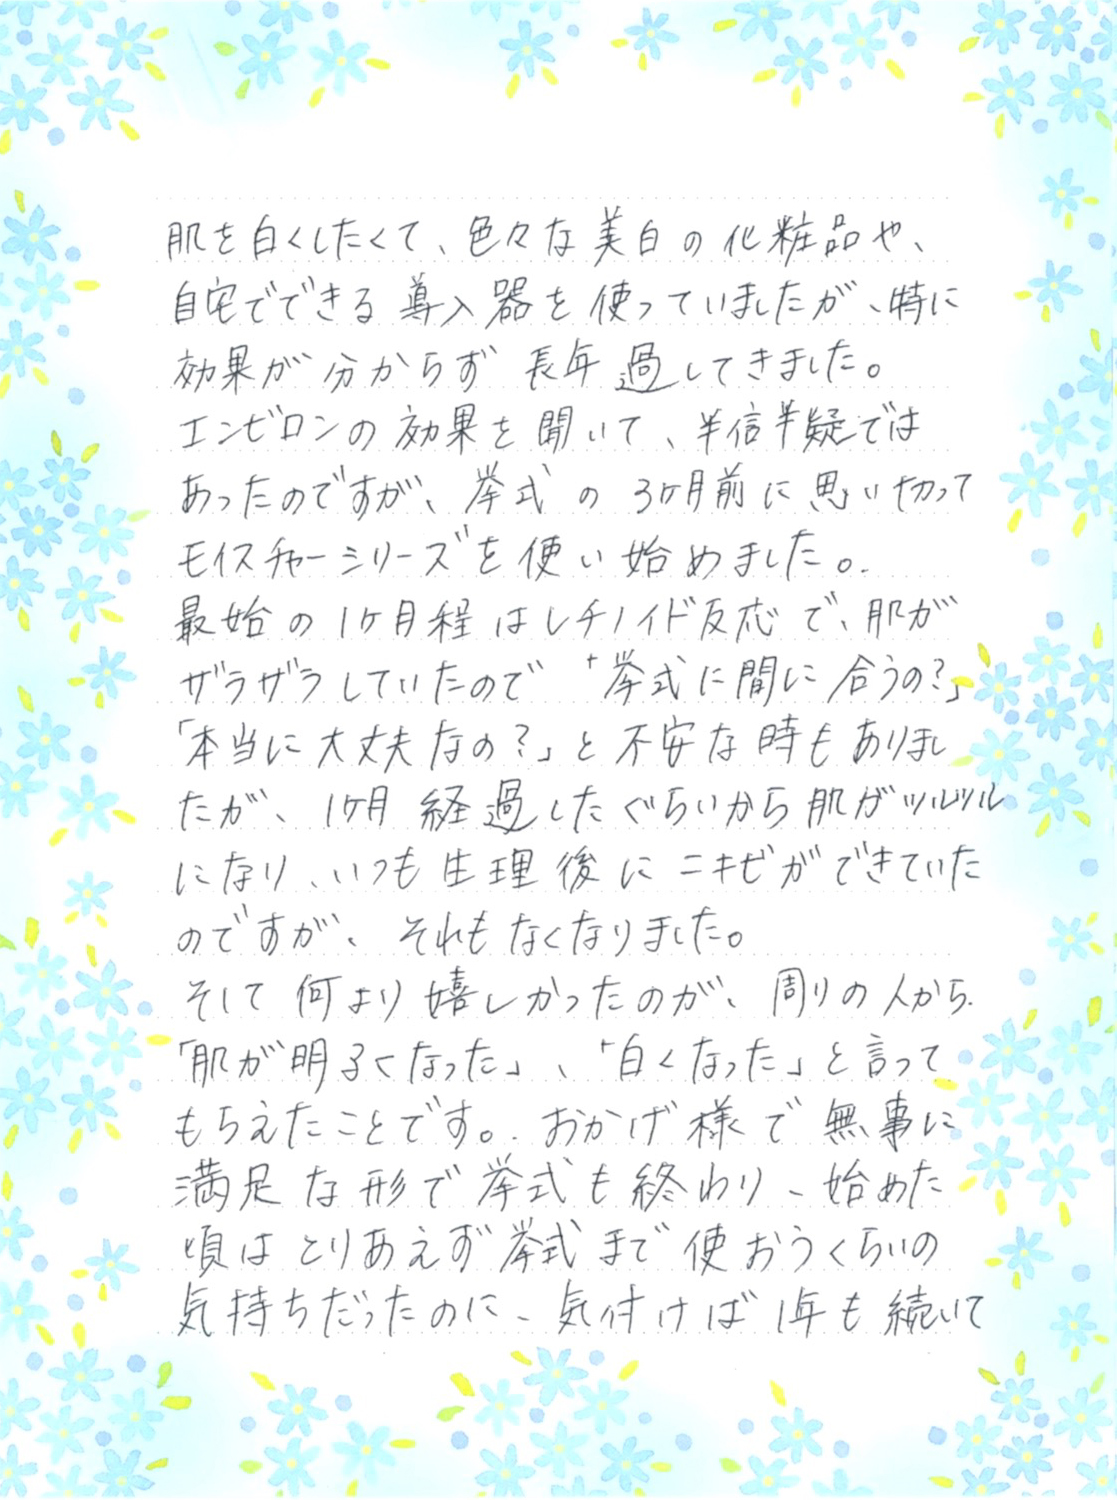 肌を白くしたくて、色々な美白の化粧品や、
自宅でできる導入器を使っていましたが、特に
効果が分からず長年過してきました。
エンビロンの効果を聞いて、半信半疑では
あったのですが、挙式の3ヶ月前に思い切って
モイスチャーシリーズを使い始めました。
最始の1ヶ月程はレチノイド反応で、肌が
ザラザラしていたので「挙式に間に合うの?」
「本当に大丈夫なの?」と不安な時もありまし
たが、1ヶ月経過したぐらいから肌がツルツル
になり、いつも生理後にニキビができていた
のですが、それもなくなりました。
そして何より嬉しかったのが、周りの人から
「肌が明るくなった」、「白くなった」と言って
もらえたことです。おかげ様で無事に
満足な形で挙式も終わり、始めた
頃はとりあえず挙式まで使おうくらいの
気持ちだったのに、気付けば1年も続いて